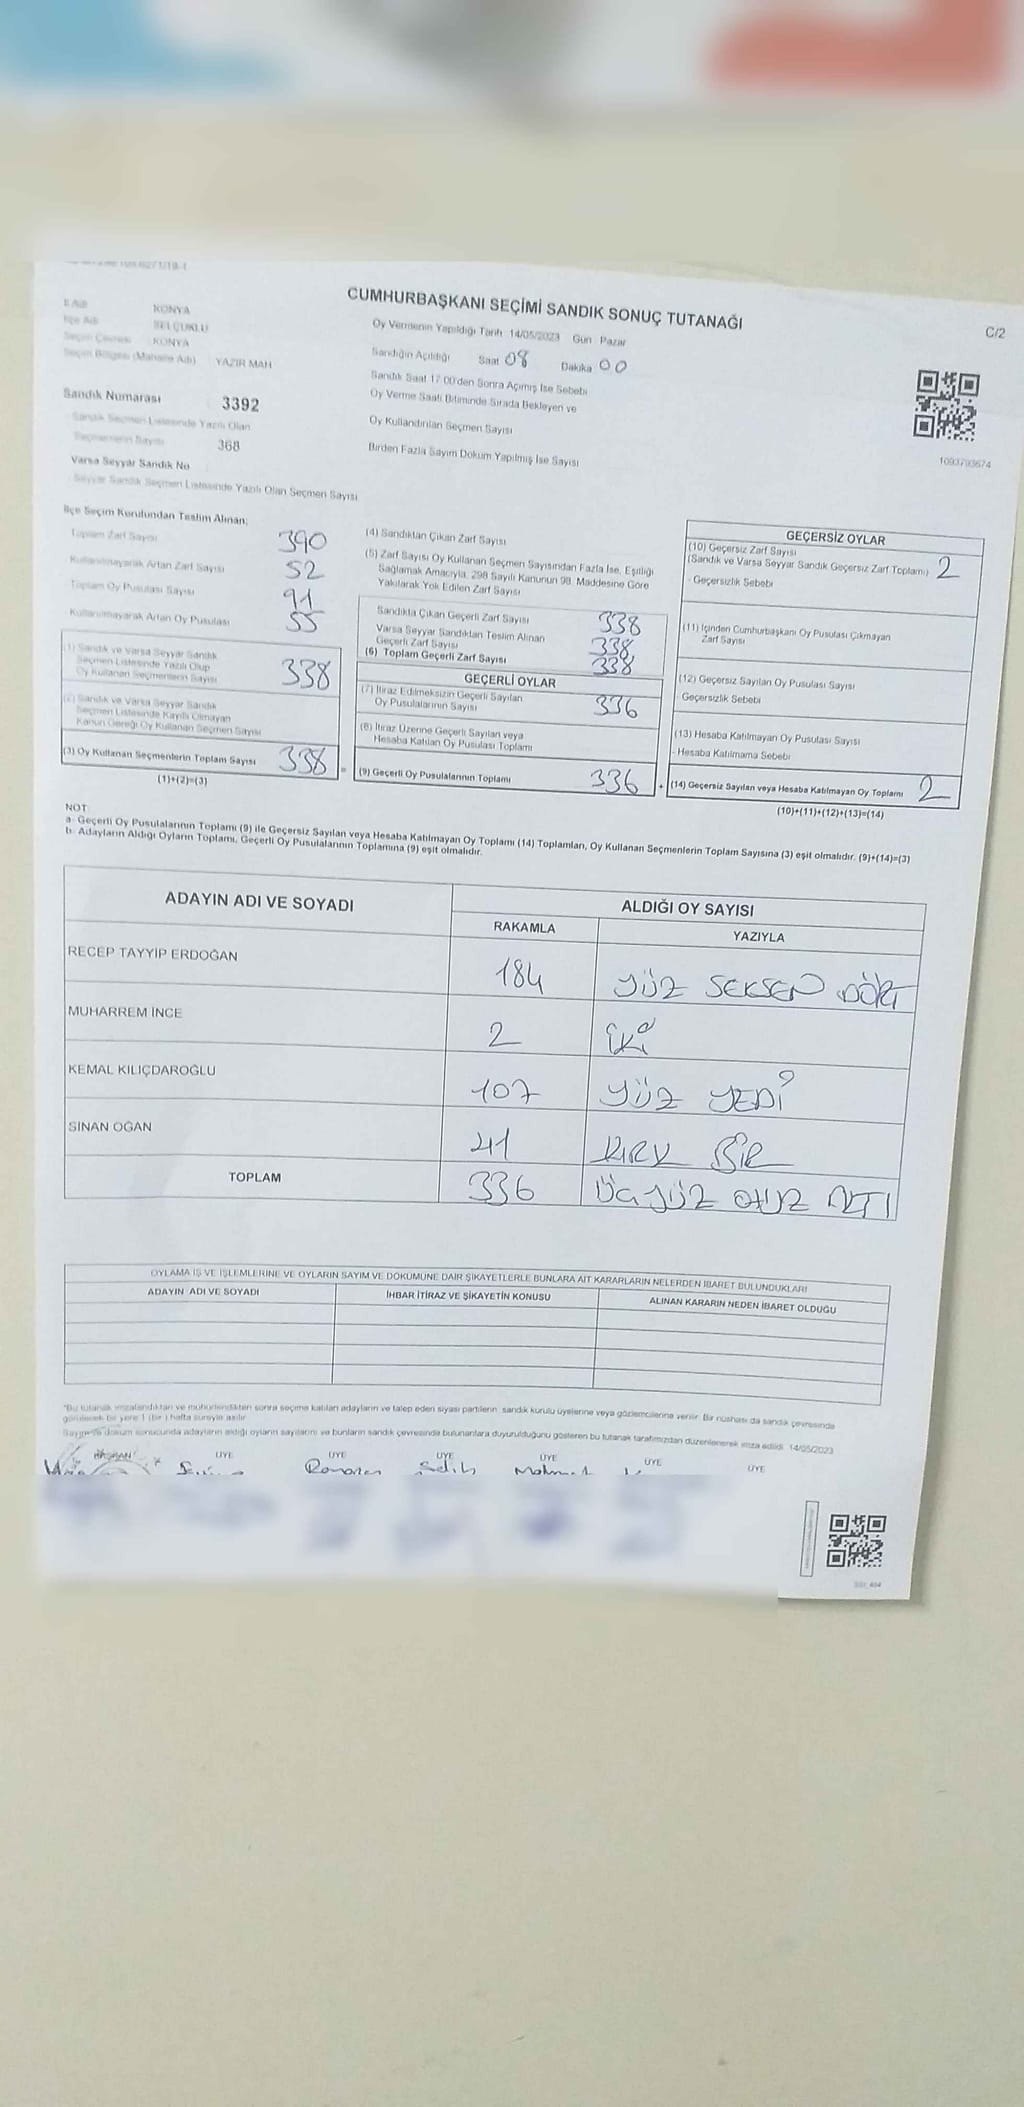 CUMHURBAŞKANI SEÇİMİ SANDIK SONUÇ TUTANAĞI
C/2
İl Adı KONYA
İlçe Adı SELÇUKLU
Seçim Çevresi KONYA
Seçim Bölgesi (Mahalle Adı) YAZIR MAH
Oy Vermenin Yapıldığı Tarih 14/05/2023 Gün Pazar
Sandığın Açıldığı Saat 08 Dakika 00
Sandık Saat 17:00'den Sonra Açımış İse Sebebi
Oy Verme Saati Bitiminde Sırada Bekleyen ve
Oy Kullandırılan Seçmen Sayısı
Birden Fazla Sayım Döküm Yapılmış İse Sayısı
1093793674
Sandık Numarası 3392
Sandık Seçmen Listesinde Yazılı Olan
Seçmenlerin Sayısı 368
Varsa Seyyar Sandık No
Seyyar Sandık Seçmen Listesinde Yazılı Olan Seçmen Sayısı
İlçe Seçim Kurulundan Teslim Alınan;
Toplam Zarf Sayısı 390
Kullanılmayarak Artan Zarf Sayısı 52
Toplam Oy Pusulası Sayısı 91
Kullanılmayarak Artan Oy Pusulası 55
(1) Sandık ve Varsa Seyyar Sandık
Seçmen Listesinde Yazılı Olup
Oy Kullanan Seçmenlerin Sayısı 338
(2) Sandık ve Varsa Seyyar Sandık
Seçmen Listesinde Kayıtlı Olmayan
Kanun Gereği Oy Kullanan Seçmen Sayısı
(3) Oy Kullanan Seçmenlerin Toplam Sayısı 338
(1)+(2)=(3)
(4) Sandıktan Çıkan Zarf Sayısı
(5) Zarf Sayısı Oy Kullanan Seçmen Sayısından Fazla İse, Eşitliği
Sağlamak Amacıyla, 298 Sayılı Kanunun 98. Maddesine Göre
Yakılarak Yok Edilen Zarf Sayısı
Sandıkta Çıkan Geçerli Zarf Sayısı 338
Varsa Seyyar Sandıktan Teslim Alınan
Geçerli Zarf Sayısı 338
(6) Toplam Geçerli Zarf Sayısı 338
GEÇERLİ OYLAR
(7) İtiraz Edilmeksizin Geçerli Sayılan
Oy Pusulalarının Sayısı 336
(8) İtiraz Üzerine Geçerli Sayılan veya
Hesaba Katılan Oy Pusulası Toplamı
= (9) Geçerli Oy Pusulalarının Toplamı 336
GEÇERSİZ OYLAR
(10) Geçersiz Zarf Sayısı
(Sandık ve Varsa Seyyar Sandık Geçersiz Zarf Toplamı) 2
- Geçersizlik Sebebi
(11) İçinden Cumhurbaşkanı Oy Pusulası Çıkmayan
Zarf Sayısı
(12) Geçersiz Sayılan Oy Pusulası Sayısı
Geçersizlik Sebebi
(13) Hesaba Katılmayan Oy Pusulası Sayısı
- Hesaba Katılmama Sebebi
+ (14) Geçersiz Sayılan veya Hesaba Katılmayan Oy Toplamı 2
(10)+(11)+(12)+(13)=(14)
NOT:
a- Geçerli Oy Pusulalarının Toplamı (9) ile Geçersiz Sayılan veya Hesaba Katılmayan Oy Toplamı (14) Toplamları, Oy Kullanan Seçmenlerin Toplam Sayısına (3) eşit olmalıdır. (9)+(14)=(3)
b- Adayların Aldığı Oyların Toplamı, Geçerli Oy Pusulalarının Toplamına (9) eşit olmalıdır.
ADAYIN ADI VE SOYADI ALDIĞI OY SAYISI
RAKAMLA YAZIYLA
RECEP TAYYİP ERDOĞAN 184 YÜZ SEKSEN DÖRT
MUHARREM İNCE 2 İKİ
KEMAL KILIÇDAROĞLU 107 YÜZ YEDİ
SİNAN OĞAN 41 KIRK BİR
TOPLAM 336 ÜÇ YÜZ OTUZ ALTI
OYLAMA İŞ VE İŞLEMLERİNE VE OYLARIN SAYIM VE DÖKÜMÜNE DAİR ŞİKAYETLERLE BUNLARA AİT KARARLARIN NELERDEN İBARET BULUNDUKLARI
ADAYIN ADI VE SOYADI İHBAR İTİRAZ VE ŞİKAYETİN KONUSU ALINAN KARARIN NEDEN İBARET OLDUĞU
*Bu tutanak imzalandıktan ve mühürlendikten sonra seçime katılan adayların ve talep eden siyasi partilerin sandık kurulu üyelerine veya gözlemcilerine verilir. Bir nüshası da sandık çevresinde
görülecek bir yere 1 (bir) hafta süreyle asılır.
Sayım ve döküm sonucunda adayların aldığı oyların sayılarını ve bunların sandık çevresinde bulunanlara duyurulduğunu gösteren bu tutanak tarafımızdan düzenlenerek imza edildi. 14/05/2023
BAŞKAN ÜYE ÜYE ÜYE ÜYE ÜYE ÜYE
Ramazan Salih Mehmet